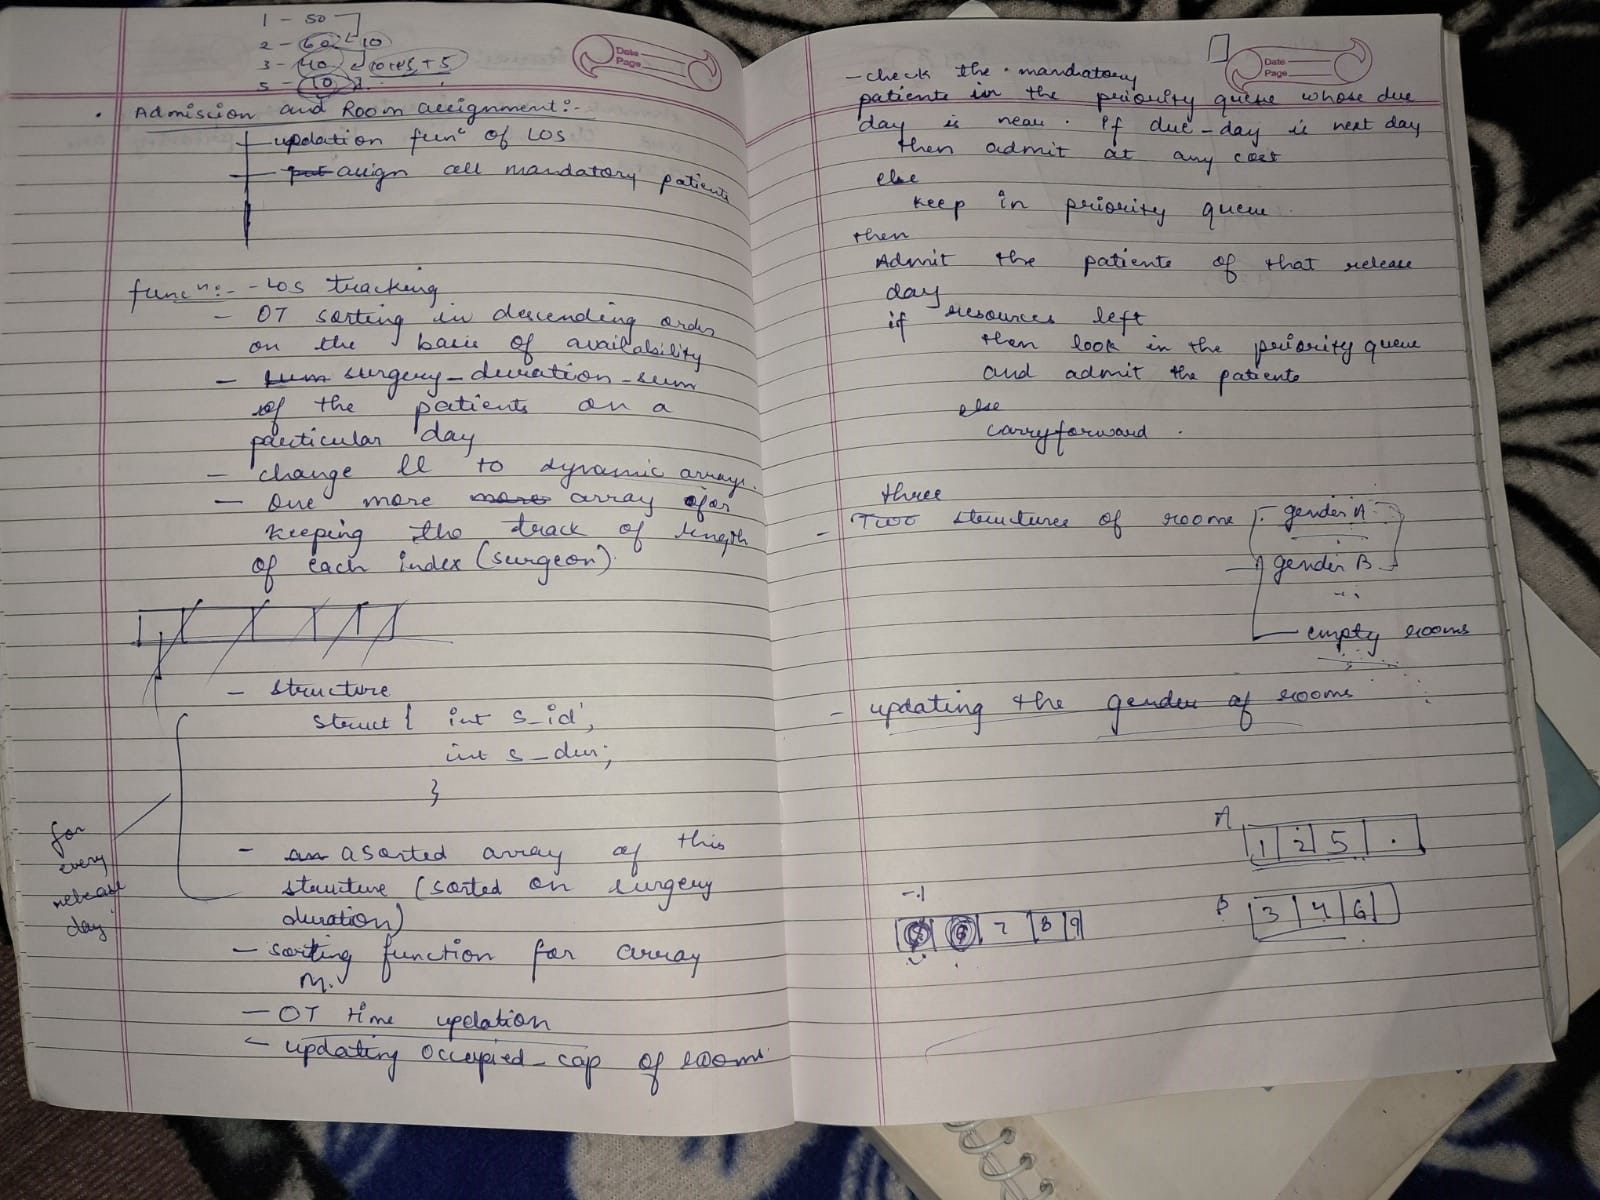 1 - 50
2 - 60 - 10
3 - 40
5 - 10
Date
Page
• Admission and Room assignment:-
updation funⁿ of LOS
put assign all mandatory patients
funcⁿ:- - LOS tracking
- OT sorting in descending order
on the basis of availability
- sum surgery-duration-sum
of the patients on a
particular day
- change ll to dynamic arrays.
- One more more array for
keeping the track of length
of each index (surgeon).
- structure
struct { int s_id;
int s_dur;
}
for
every
release
day
- an a sorted array of this
structure (sorted on surgery
duration)
- sorting function for array
M.
- OT time updation
- updating occupied-cap of rooms
Date
Page
- check the mandatory
patients in the priority queue whose due
day is near. If due-day is next day
then admit at any cost
else
keep in priority queue.
then
Admit the patients of that release
day
if resources left
then look in the priority queue
and admit the patients
else
carryforward.
three
- Two structures of rooms
gender A
gender B
empty rooms
- updating the gender of rooms
A
1 2 5 .
B
3 4 6
-1
7 8 9